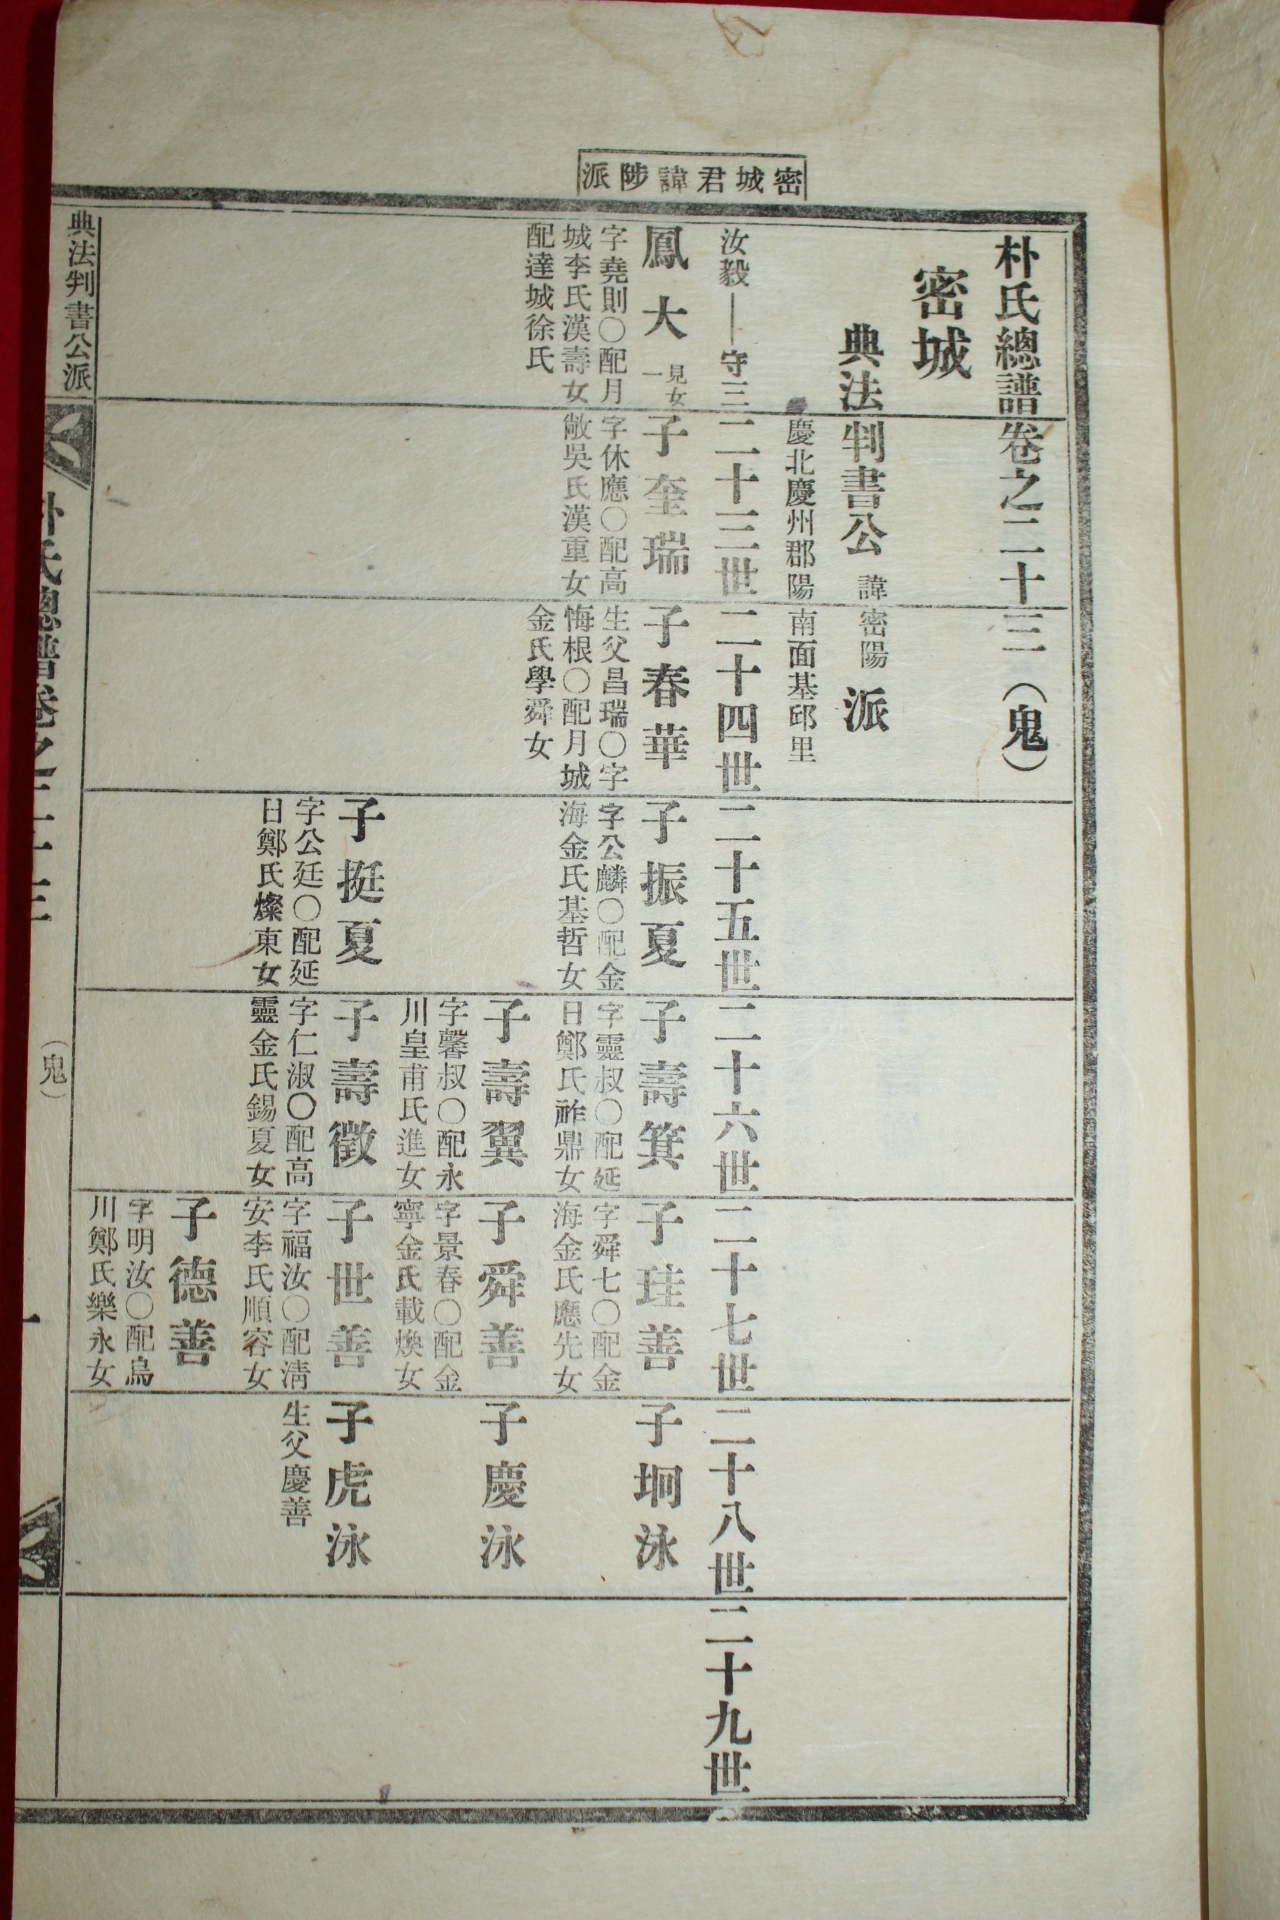 密城君諱陟派
朴氏總譜卷之二十三（鬼）
密城
典法判書公 諱密陽 派
慶北慶州郡陽南面基邱里
汝毅——守三
二十三世
二十四世
二十五世
二十六世
二十七世
二十八世
二十九世
鳳大
一見女
字堯則〇配月
城李氏漢壽女
配達城徐氏
子奎瑞
字休應〇配高
敞吳氏漢重女
子春華
生父昌瑞〇字
悔根〇配月城
金氏學舜女
子振夏
字公麟〇配金
海金氏基哲女
子挺夏
字公廷〇配延
日鄭氏燦東女
子壽箕
字靈叔〇配延
日鄭氏祚鼎女
子壽翼
字馨叔〇配永
川皇甫氏進女
子壽徵
字仁淑〇配高
靈金氏錫夏女
子珪善
字舜七〇配金
海金氏應先女
子舜善
字景春〇配金
寧金氏載煥女
子世善
字福汝〇配淸
安李氏順容女
子德善
字明汝〇配烏
川鄭氏樂永女
子坰泳
子慶泳
子虎泳
生父慶善
典法判書公派
朴氏總譜卷之二十三
（鬼）
一